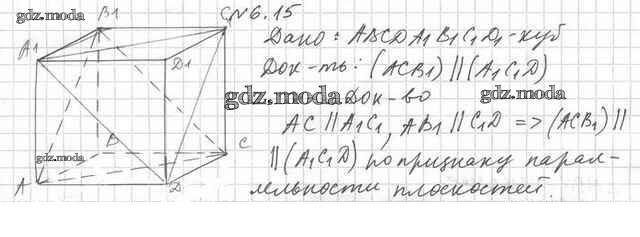 gdz.moda
B1
C1
№6.15
A1
D1
Дано: ABCDA1B1C1D1-куб
Док-ть: (ACB1) || (A1C1D)
gdz.moda
Док-во
gdz.moda
AC || A1C1, AB1 || C1D => (ACB1) ||
|| (A1C1D) по признаку парал-
лельности плоскостей.
B
C
gdz.moda
A
D